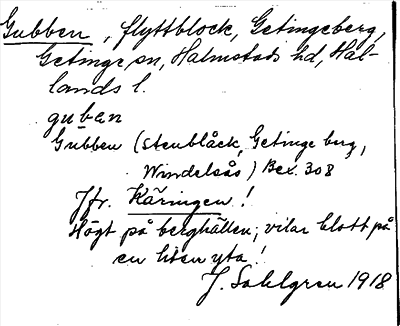 Gubben, flyttblock, Getingeberg,
Getinge sn, Halmstads hd, Hal-
lands l.
guban
Gubben (Stenblåck, Getinge berg,
Windelsås) Bex. 308
Jfr. Käringen!
Högt på berghällen; vilar blott på
en liten yta!
J. Sahlgren 1918